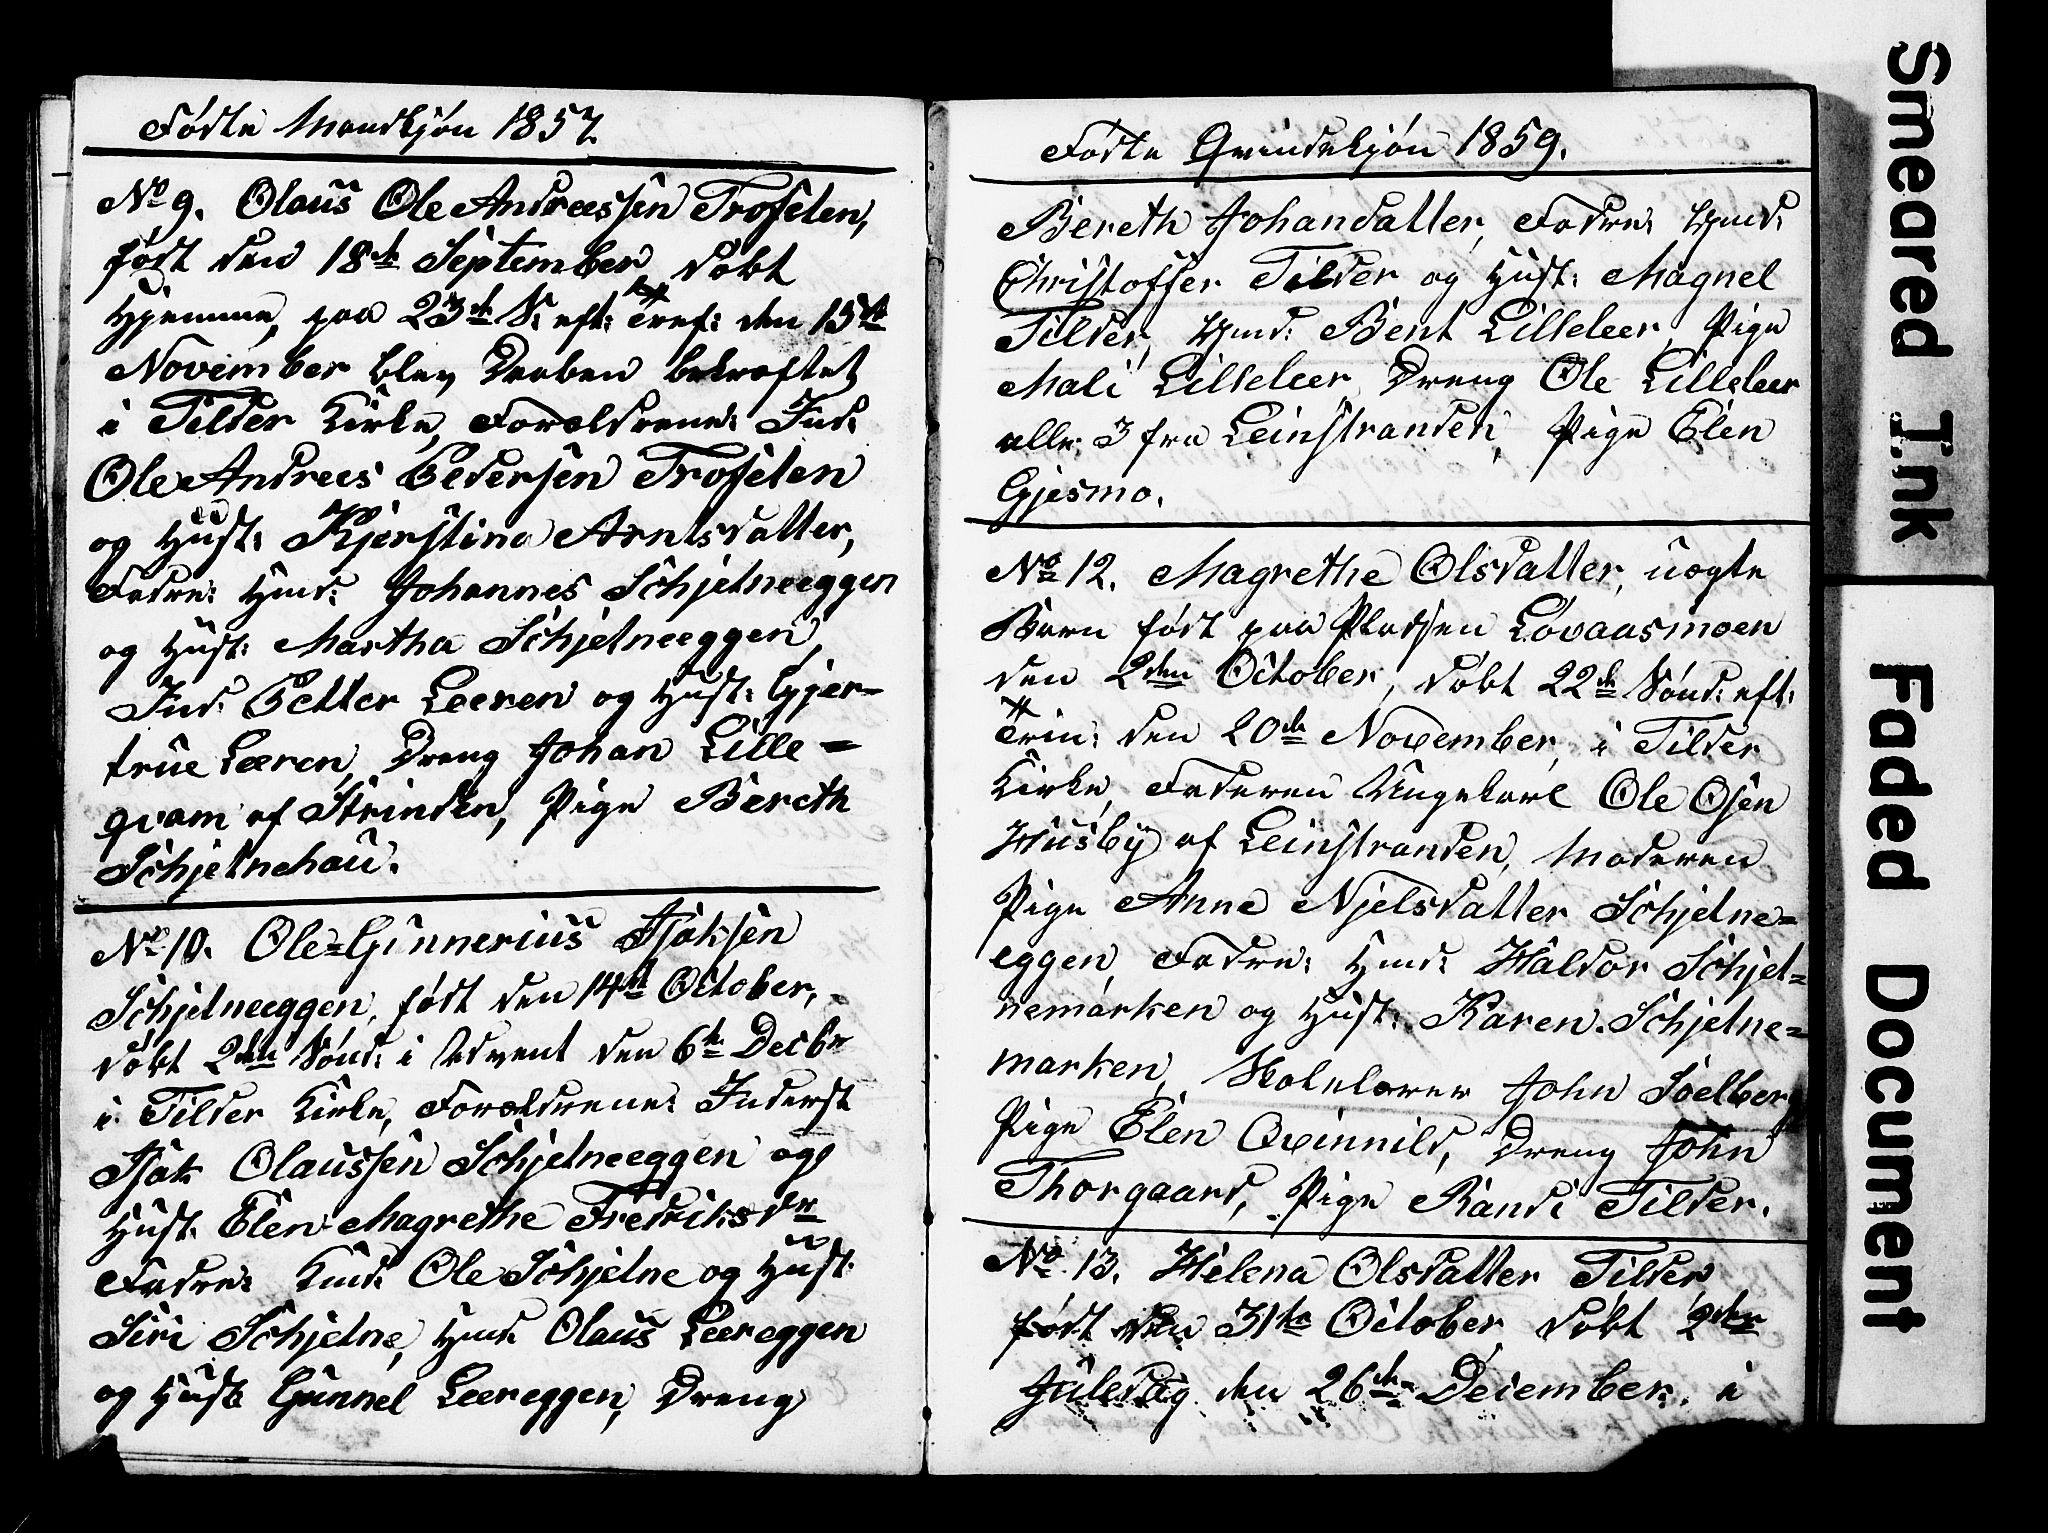 Fødte Mandkjøn 1857
No 9. Olaus Ole Andreassen Troselen,
født den 18de September, døbt
Hjemme, paa 23de S: eft: Tref: den 15de
November blev Daaben bekræftet
i Tilder Kirke, Forældrene: Ind:
Ole Andreas Pedersen Troselen
og Hust: Kjerstina Arntsdatter,
Fadre: Gmd: Johannes Schjelneeggen
og Hust: Martha Schjelneeggen,
Ind: Petter Leeren og Hust: Gjer-
true Leeren, Dreng Johan Lille=
qvam af Strinden, Pige Bereth
Schjelnehau.
No 10. Ole=Ginnerius Isaksen
Schjelneeggen, født den 14de October,
døbt 2den Sønd: i Advent den 6te Decbr
i Tilder Kirke, Forældrene: Inderst
Isak Olaussen Schjelneeggen og
Hust: Elen Magrethe Fredriksdr
Fadre: Kmd: Ole Schjelne og Hust:
Siri Schjelne, Hmd: Olaus Leereggen
og Hust: Gunnel Leereggen, Dreng
Fødte Qvindekjøn 1859.
Bereth Johandatter, Fadre: Gmd:
Christoffer Tilder og Hust: Magnel
Tilder, Gmd: Bent Lilleleer, Pige
Mali Lilleleer, Dreng Ole Lilleleer
alle 3 fra Leinstranden, Pige Elen
Gjesmo.
No 12. Magrethe Olsdatter, uægte
Barn født paa Pladsen Løvaasmoen
den 2den October, døbt 22de Sønd: eft:
Trin: den 20de November, i Tilder
Kirke, Faderen Ungekarl Ole Osen
Husby af Leinstranden, Moderen
Pige Anne Njelsdatter Schjelne=
eggen, Fadre: Gmd: Haldor Schjel=
nemarken og Hust: Karen Schjelne=
marken, Skolelærer John Soelberg
Pige Elen Qvinnild, Dreng John
Thorgaard, Pige Randi Tilder.
No 13. Helena Olsdatter Tilder
født den 31te October, døbt 2den
Juledag den 26de December, i
Smeared Ink
Faded Document